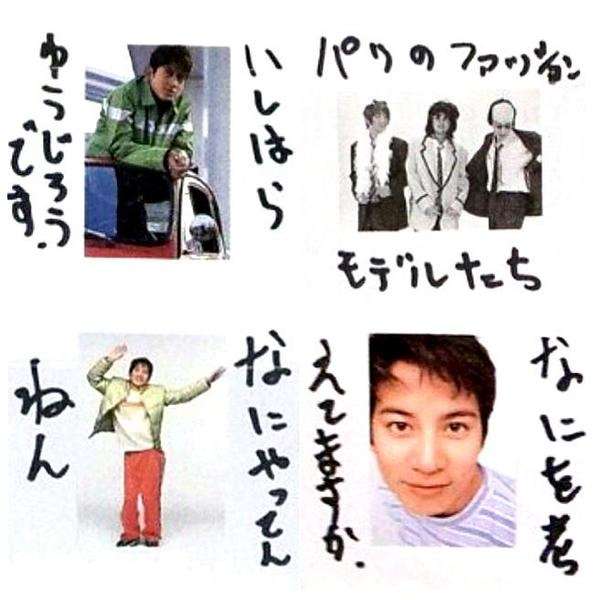 いしはら
ゆうじろう
です.
パリのファッション
モデルたち
なにやってん
ねん
なにを考
えてますか.